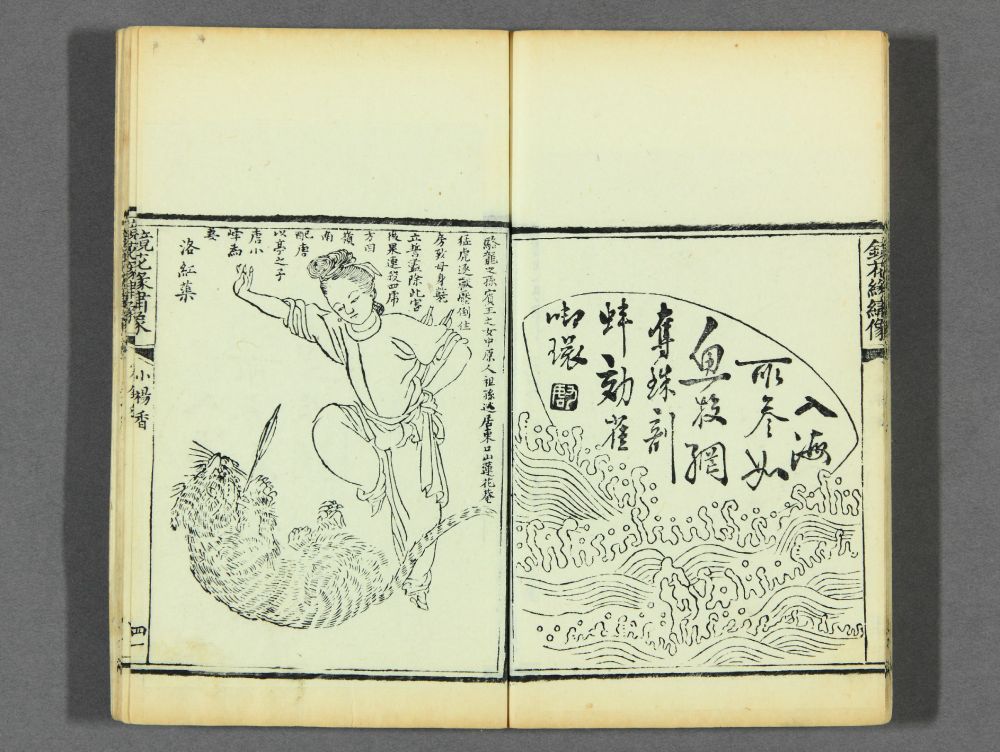 鏡花緣繡像
入海
取參如
魚投網
奪珠剖
蚌効雀
啣環
駱龍之孫賓王之女中原人祖孫逃居東口山蓮花菴
猛虎逐獸壓倒住
房致母身斃
立誓盡除此害
後果連殺四虎
方回
嶺
南
配唐
以亭之子
唐小
峰為
妻
洛紅蕖
鏡花緣繡像
小楊香
四一